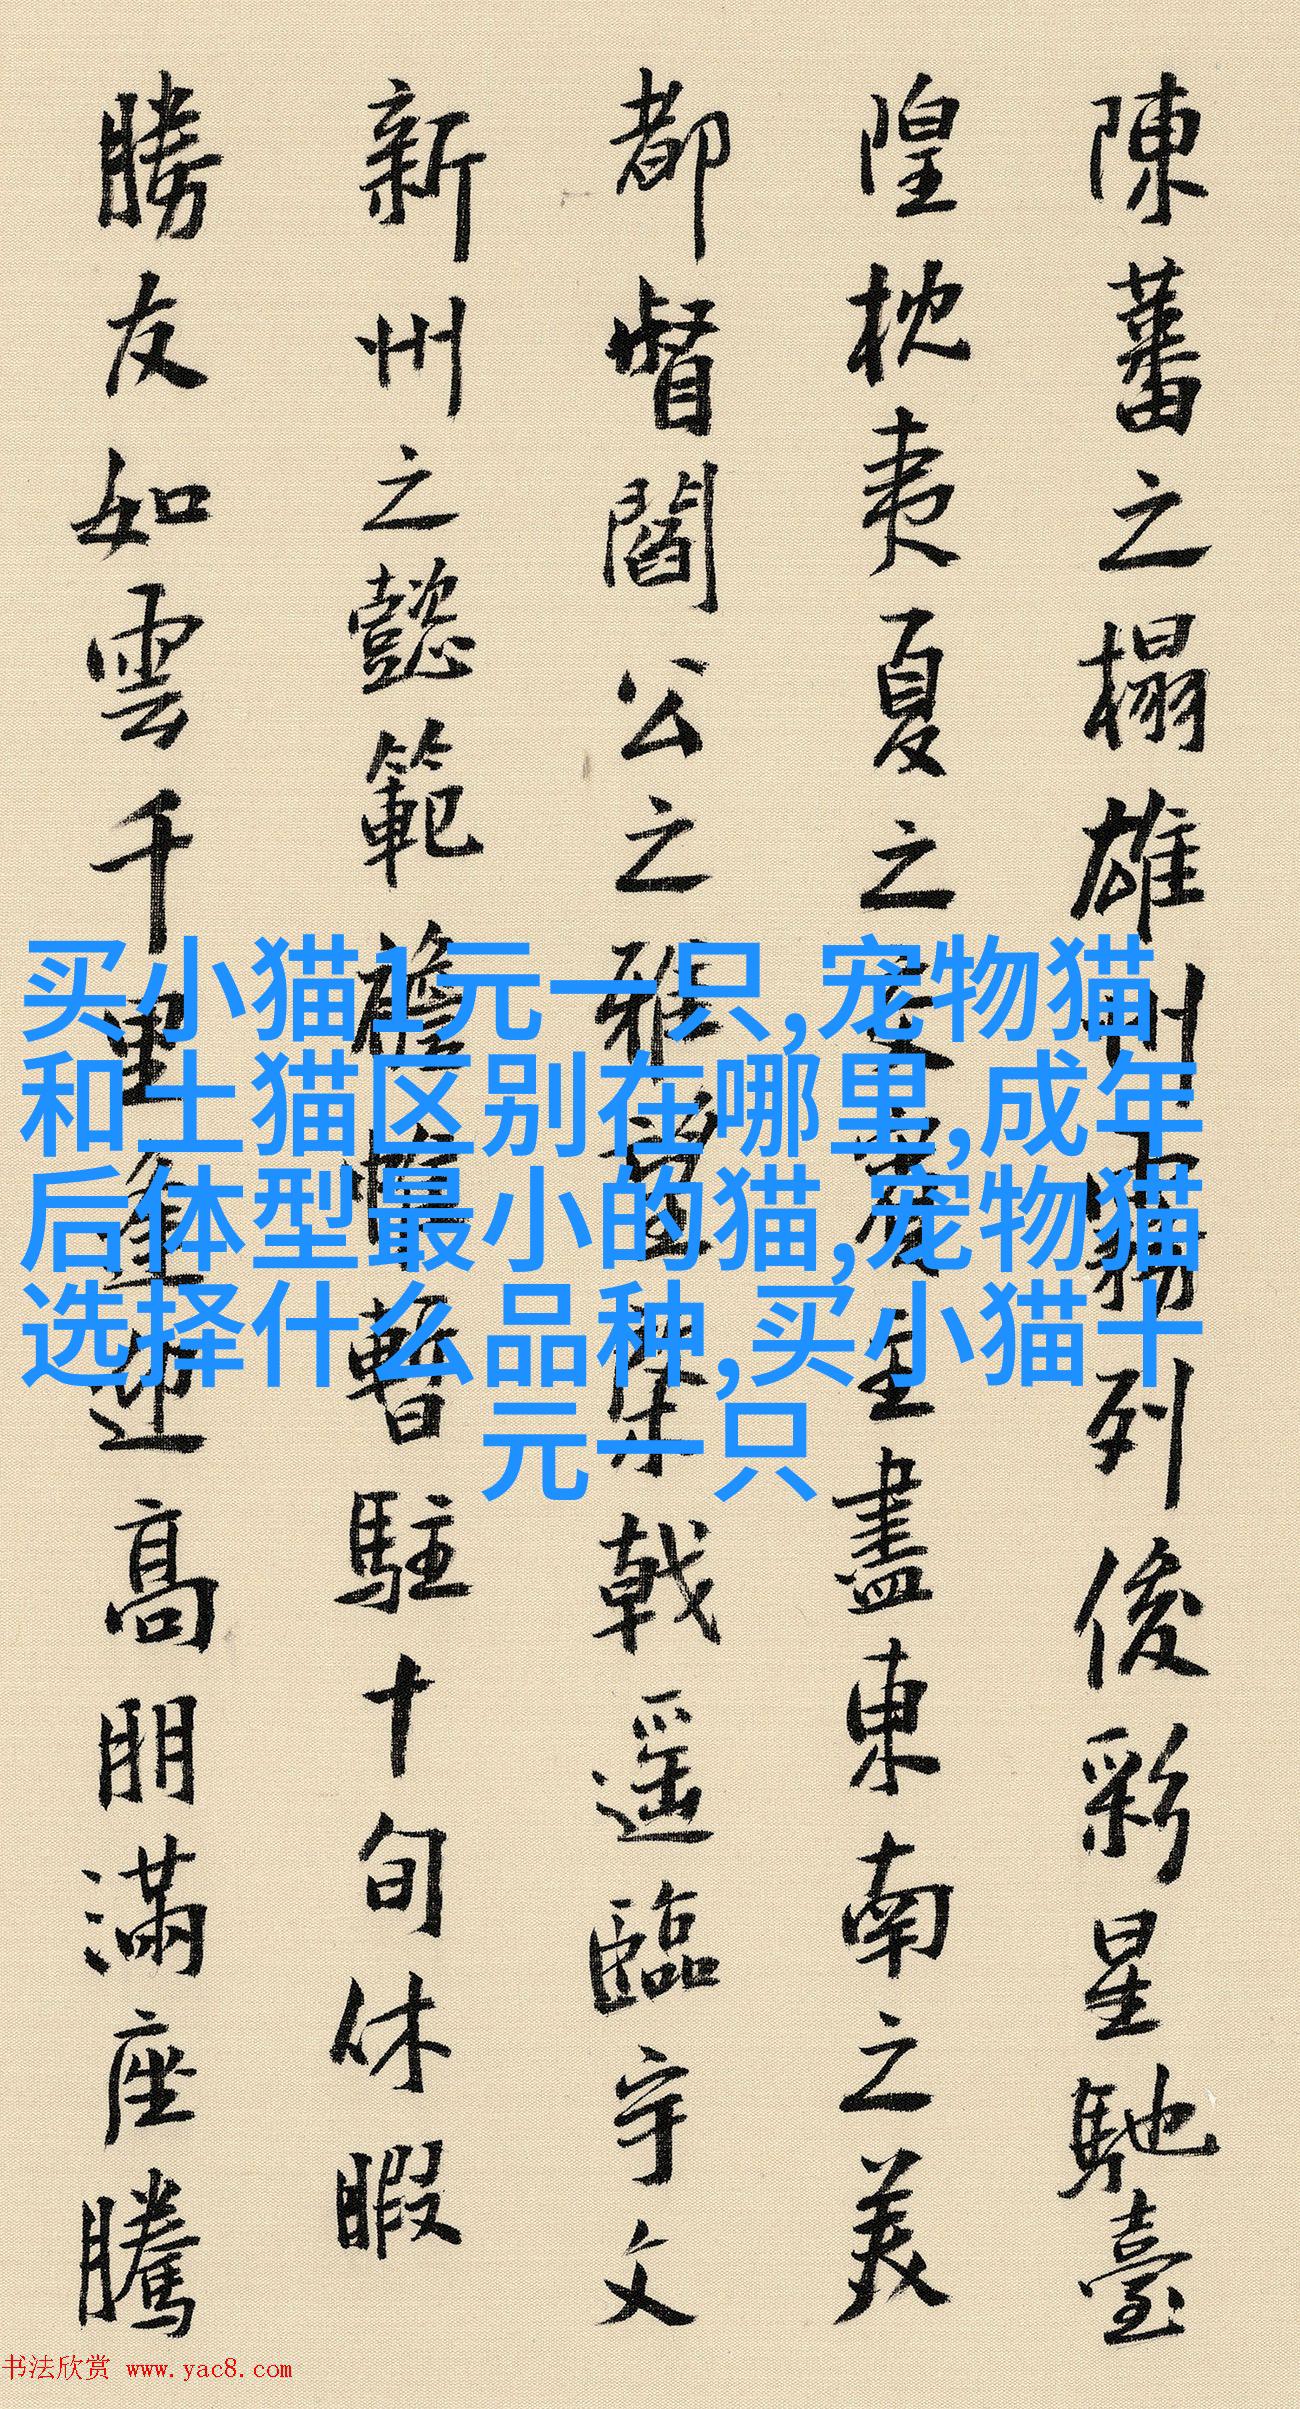 陳蕃之榻雄州霧列俊彩星馳臺
隍枕夷夏之交賓主盡東南之美
都督閻公之雅望棨戟遥臨宇文
新州之懿範襜帷暫駐十旬休暇
勝友如雲千里逢迎髙朋滿座騰
买小猫1元一只,宠物猫
和土猫区别在哪里,成年
后体型最小的猫,宠物猫
选择什么品种,买小猫十
元一只
书法欣赏 www.yac8.com